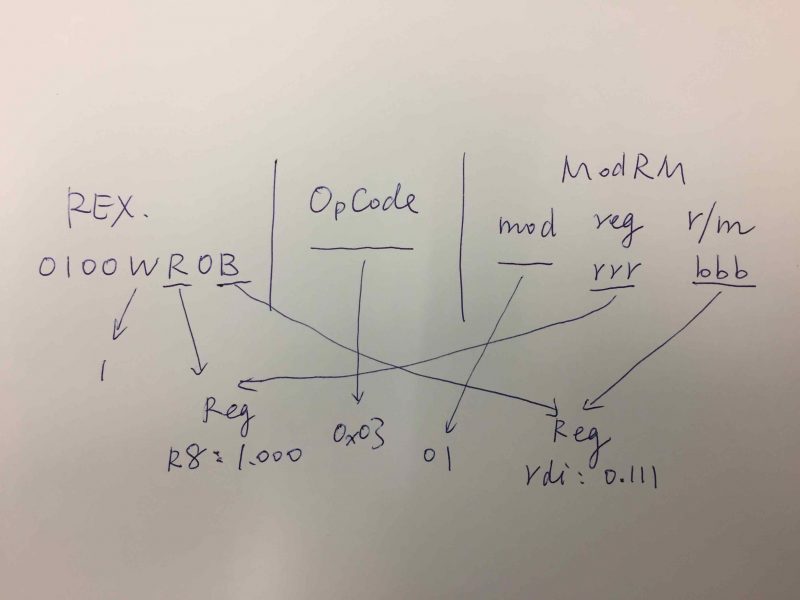 REX.
0100WR0B
1
OpCode
ModRM
mod reg r/m
rrr bbb
Reg
R8: 1.000
0x03
01
Reg
rdi: 0.111